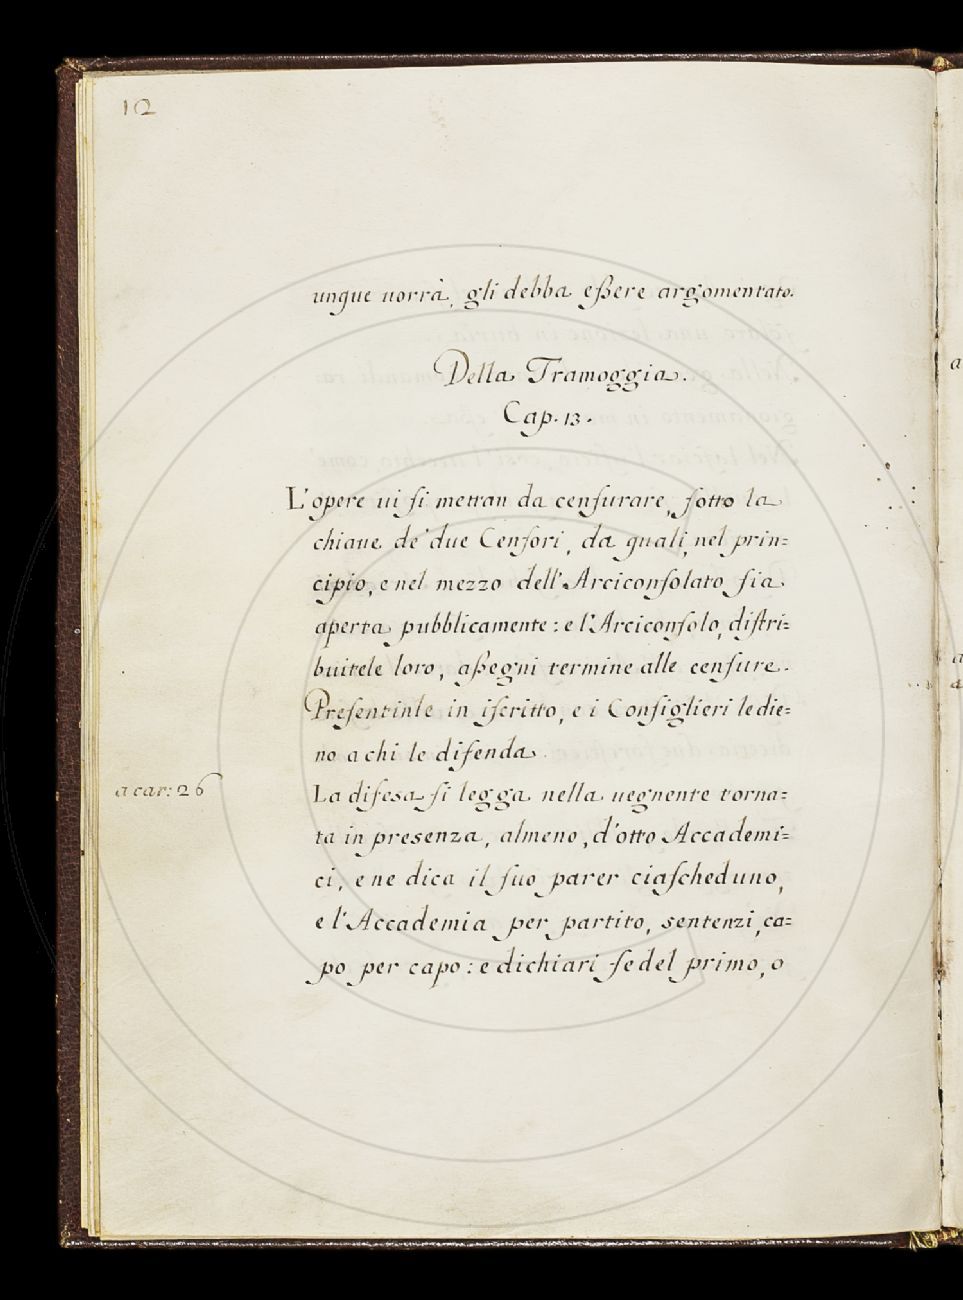 12
unque uorrà, gli debba eſsere argomentato.
Della Tramoggia.
Cap. 13.
L'opere ui ſi mettan da cenſurare, ſotto la
chiaue de' due Cenſori, da quali, nel prin=
cipio, e nel mezzo dell'Arciconſolato ſia
aperta pubblicamente: e l'Arciconſolo, diſtri=
buitele loro, aſsegni termine alle cenſure.
Preſentinle in iſcritto, e i Conſiglieri le die=
no a chi le difenda.
a car: 26
La difesa ſi legga nella uegnente torna=
ta in presenza, almeno, d'otto Accademi=
ci, e ne dica il ſuo parer ciaſcheduno,
e l'Accademia per partito, sentenzi, ca=
po per capo: e dichiari ſe del primo, o